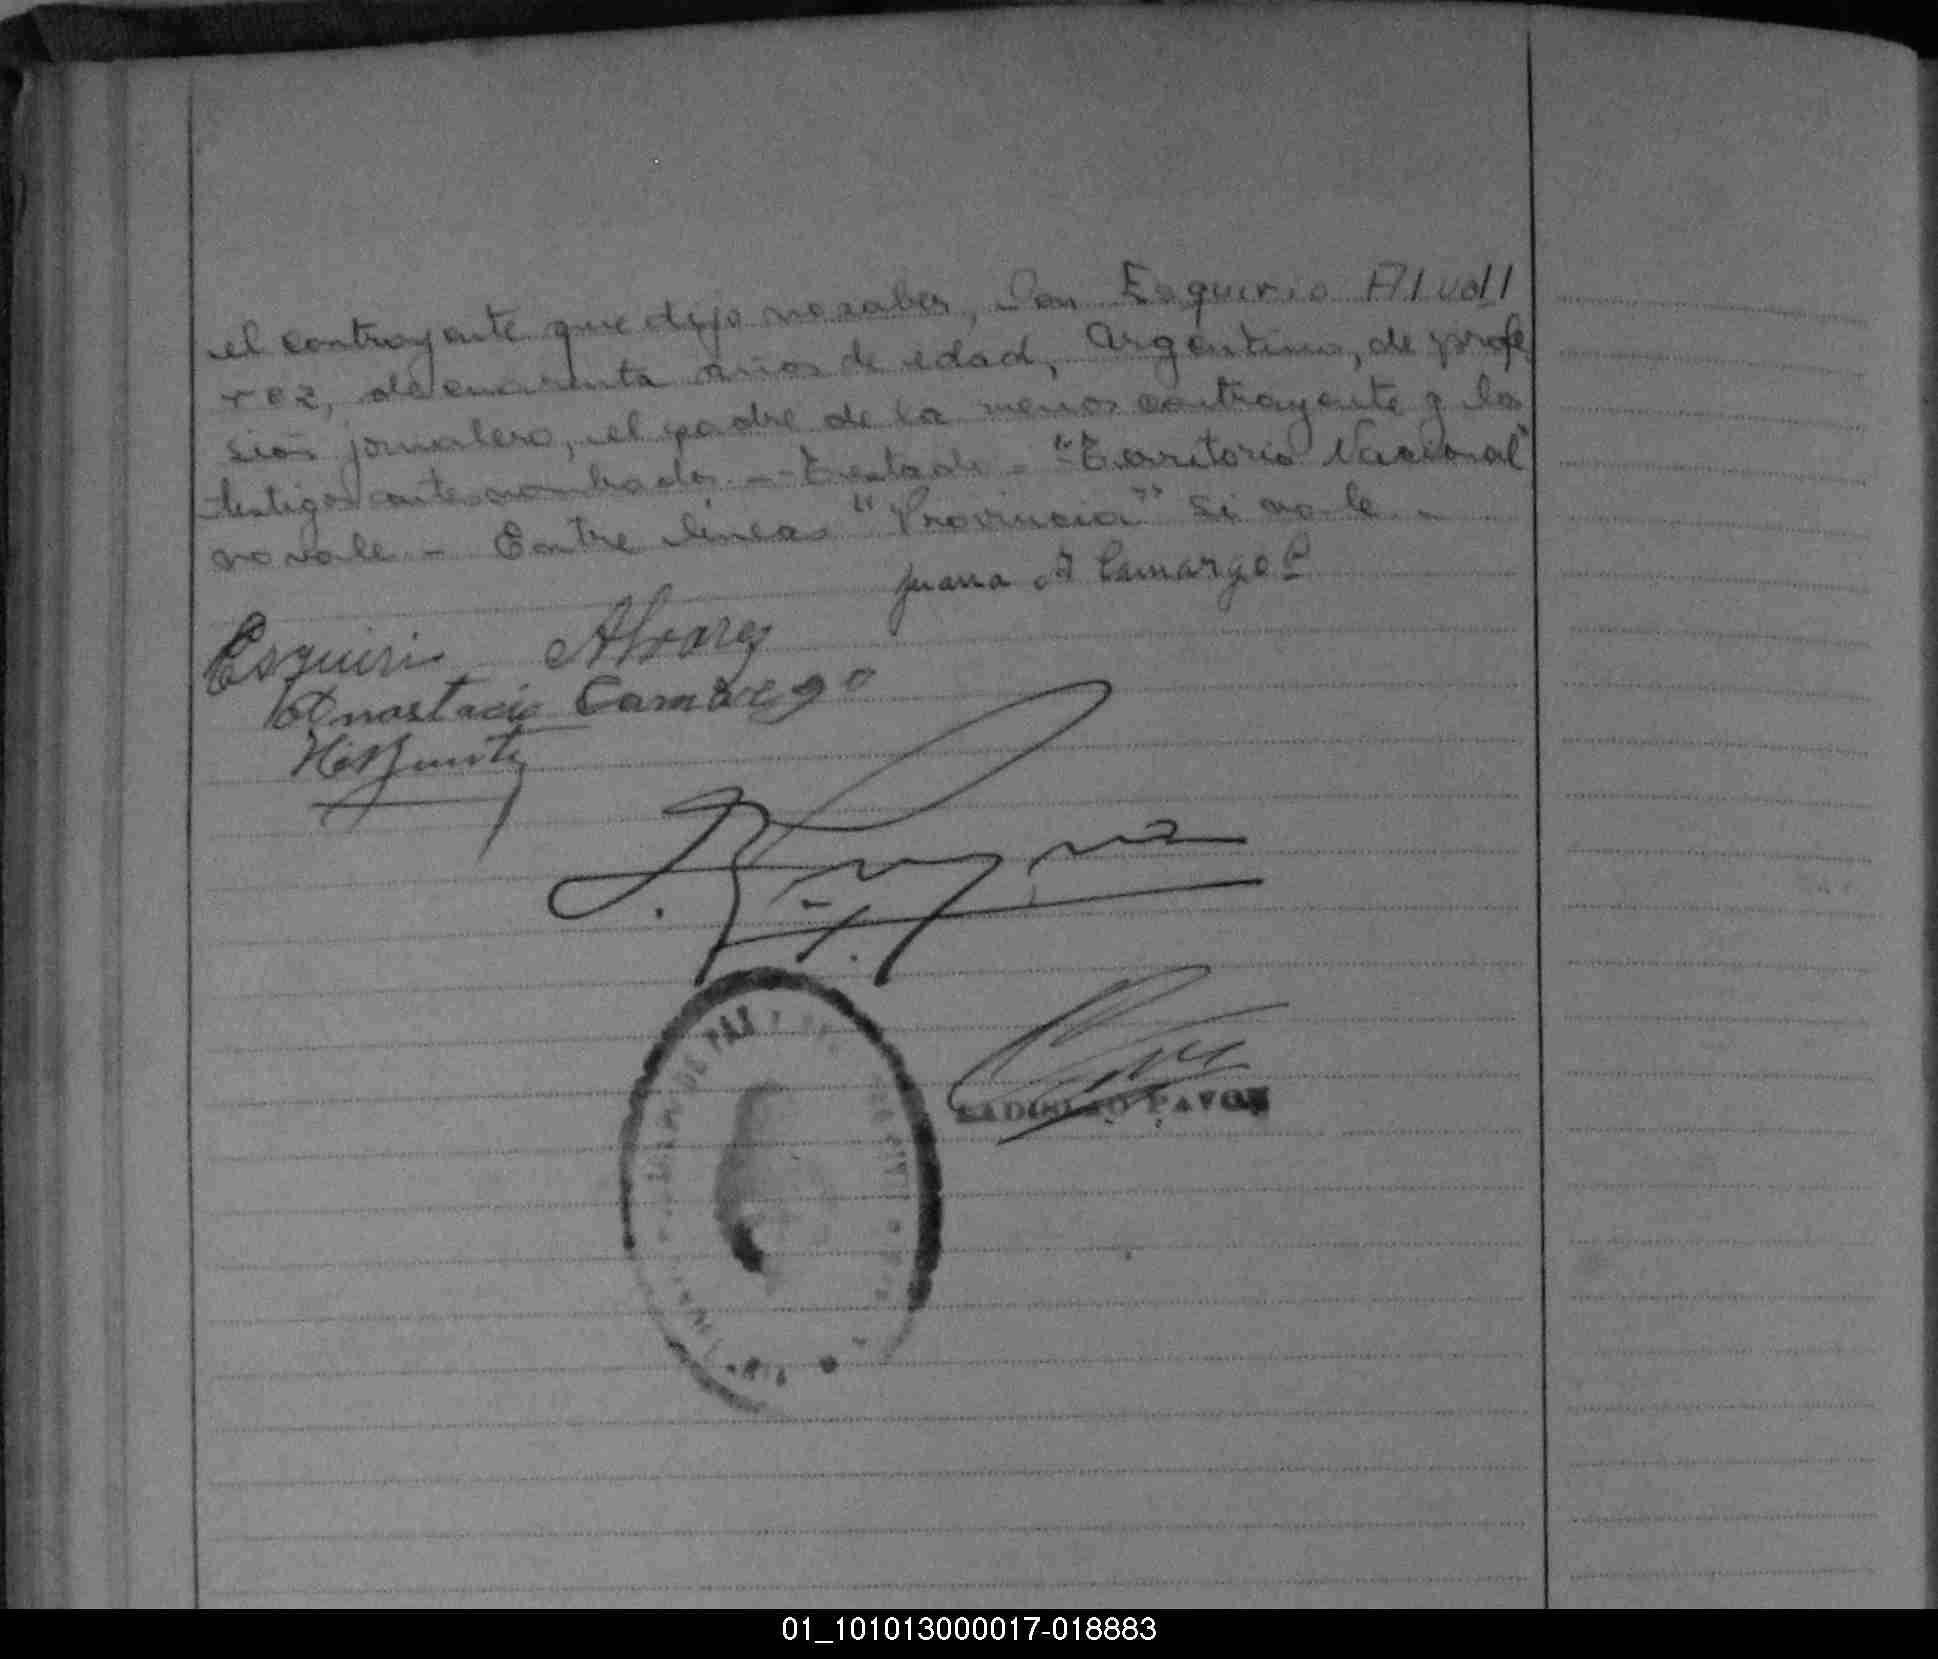 el contrayente que dijo no saber, Don Esquirio Alvall
rez, de cuarenta años de edad, Argentino, de profe
sión jornalero, el padre de la menor contrayente y los
testigos antes nombrados - Testado - "Territorio Nacional"
no vale - Entre lineas "Provincia" Si vale -
Juana A Camargo P
Esquirio Alvarez
Anastacio Camargo
DE PAZ
LADISLAO PAVON
01_101013000017-018883